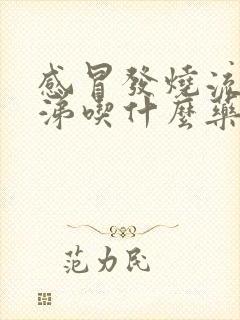 感冒發燒流
涕喫什麼藥
范力民